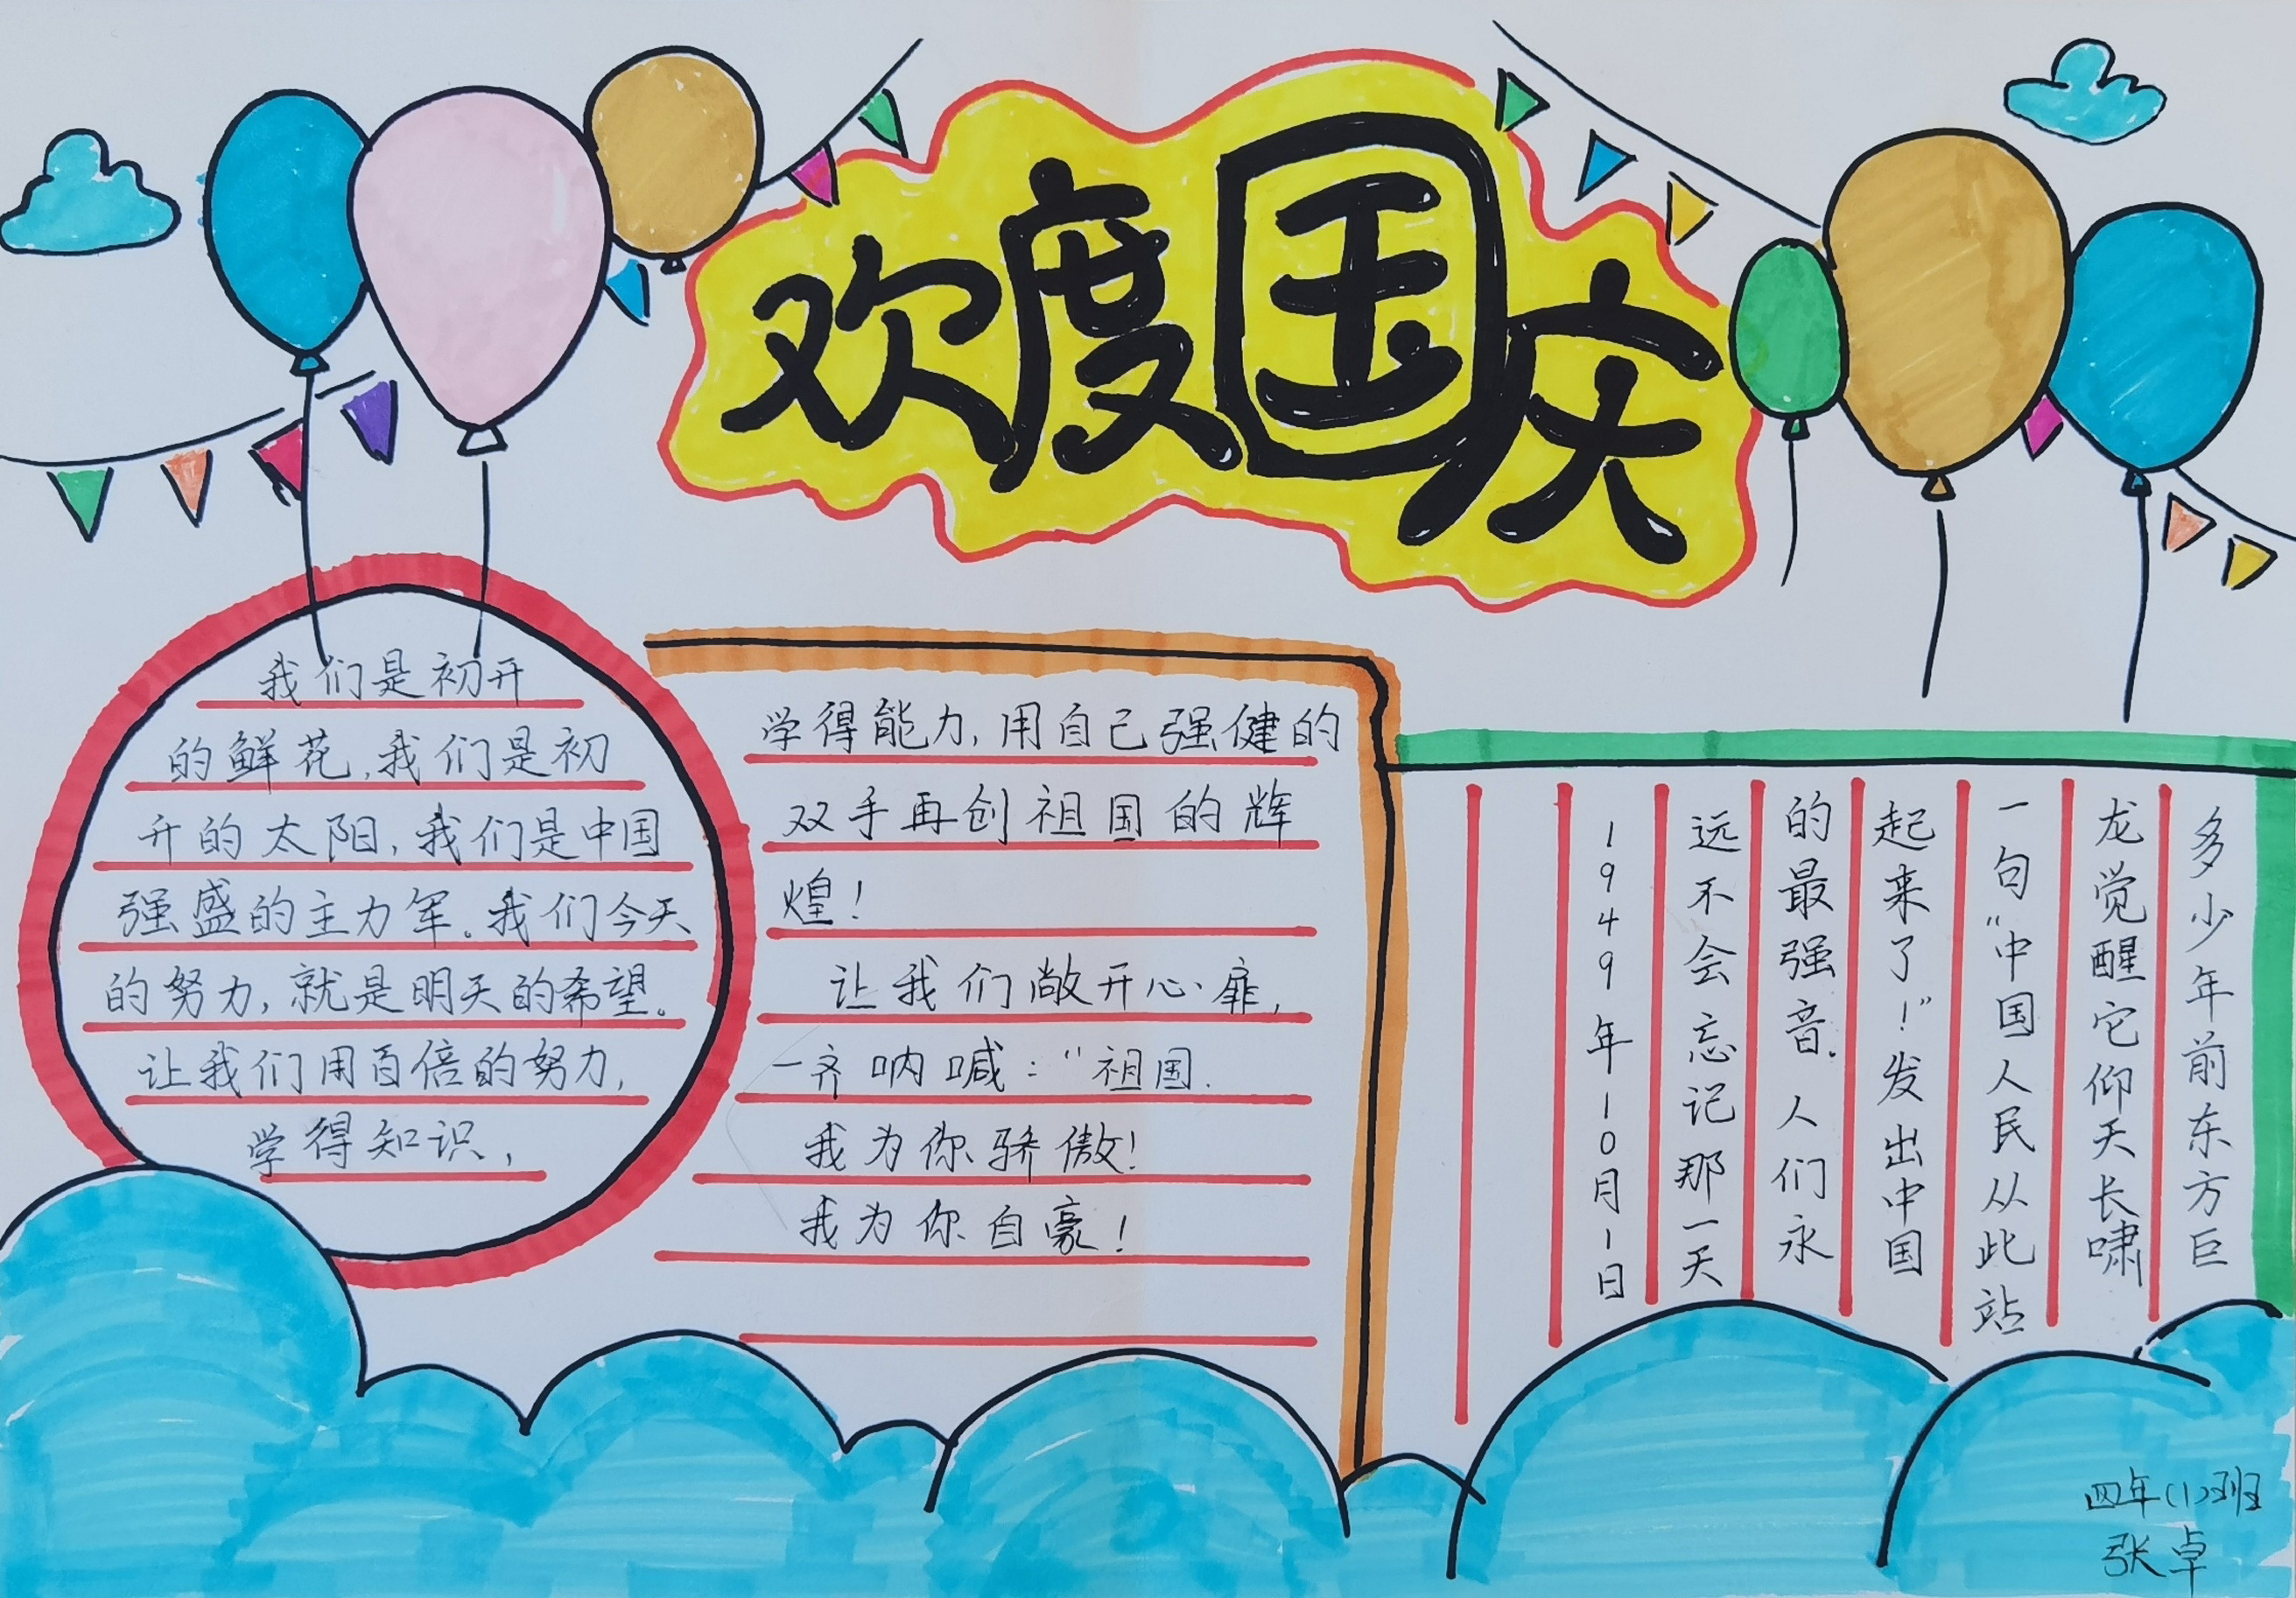 欢度国庆
我们是初开
的鲜花,我们是初
升的太阳,我们是中国
强盛的主力军。我们今天
的努力,就是明天的希望。
让我们用百倍的努力,
学得知识,
学得能力,用自己强健的
双手再创祖国的辉
煌!
让我们敞开心扉,
一齐呐喊:“祖国.
我为你骄傲!
我为你自豪!
多少年前东方巨
龙觉醒它仰天长啸
一句“中国人民从此站
起来了!”发出中国
的最强音.人们永
远不会忘记那一天
1949年10月1日
四年(1)班
张卓